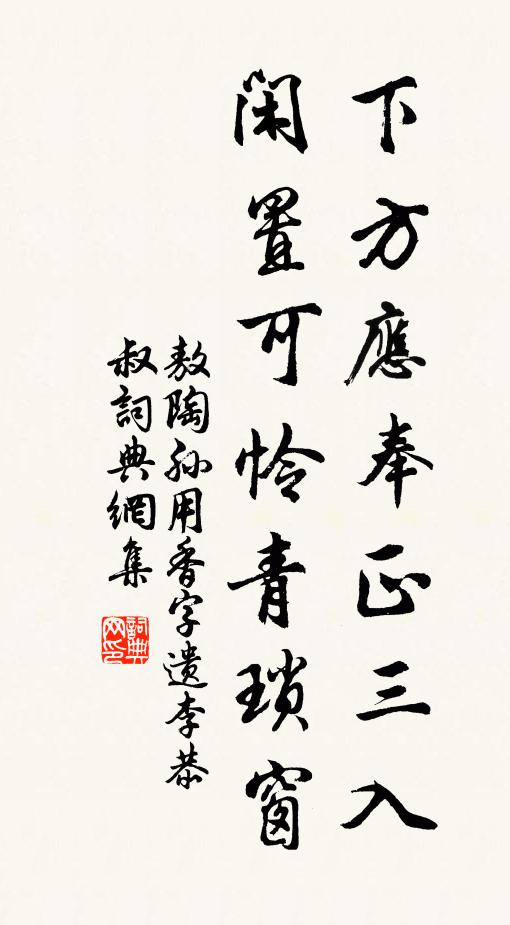 下方應奉正三入
閑置可怜青瑣窗
敖陶孫用香字遺李恭
叔詞典網集
詞典網印